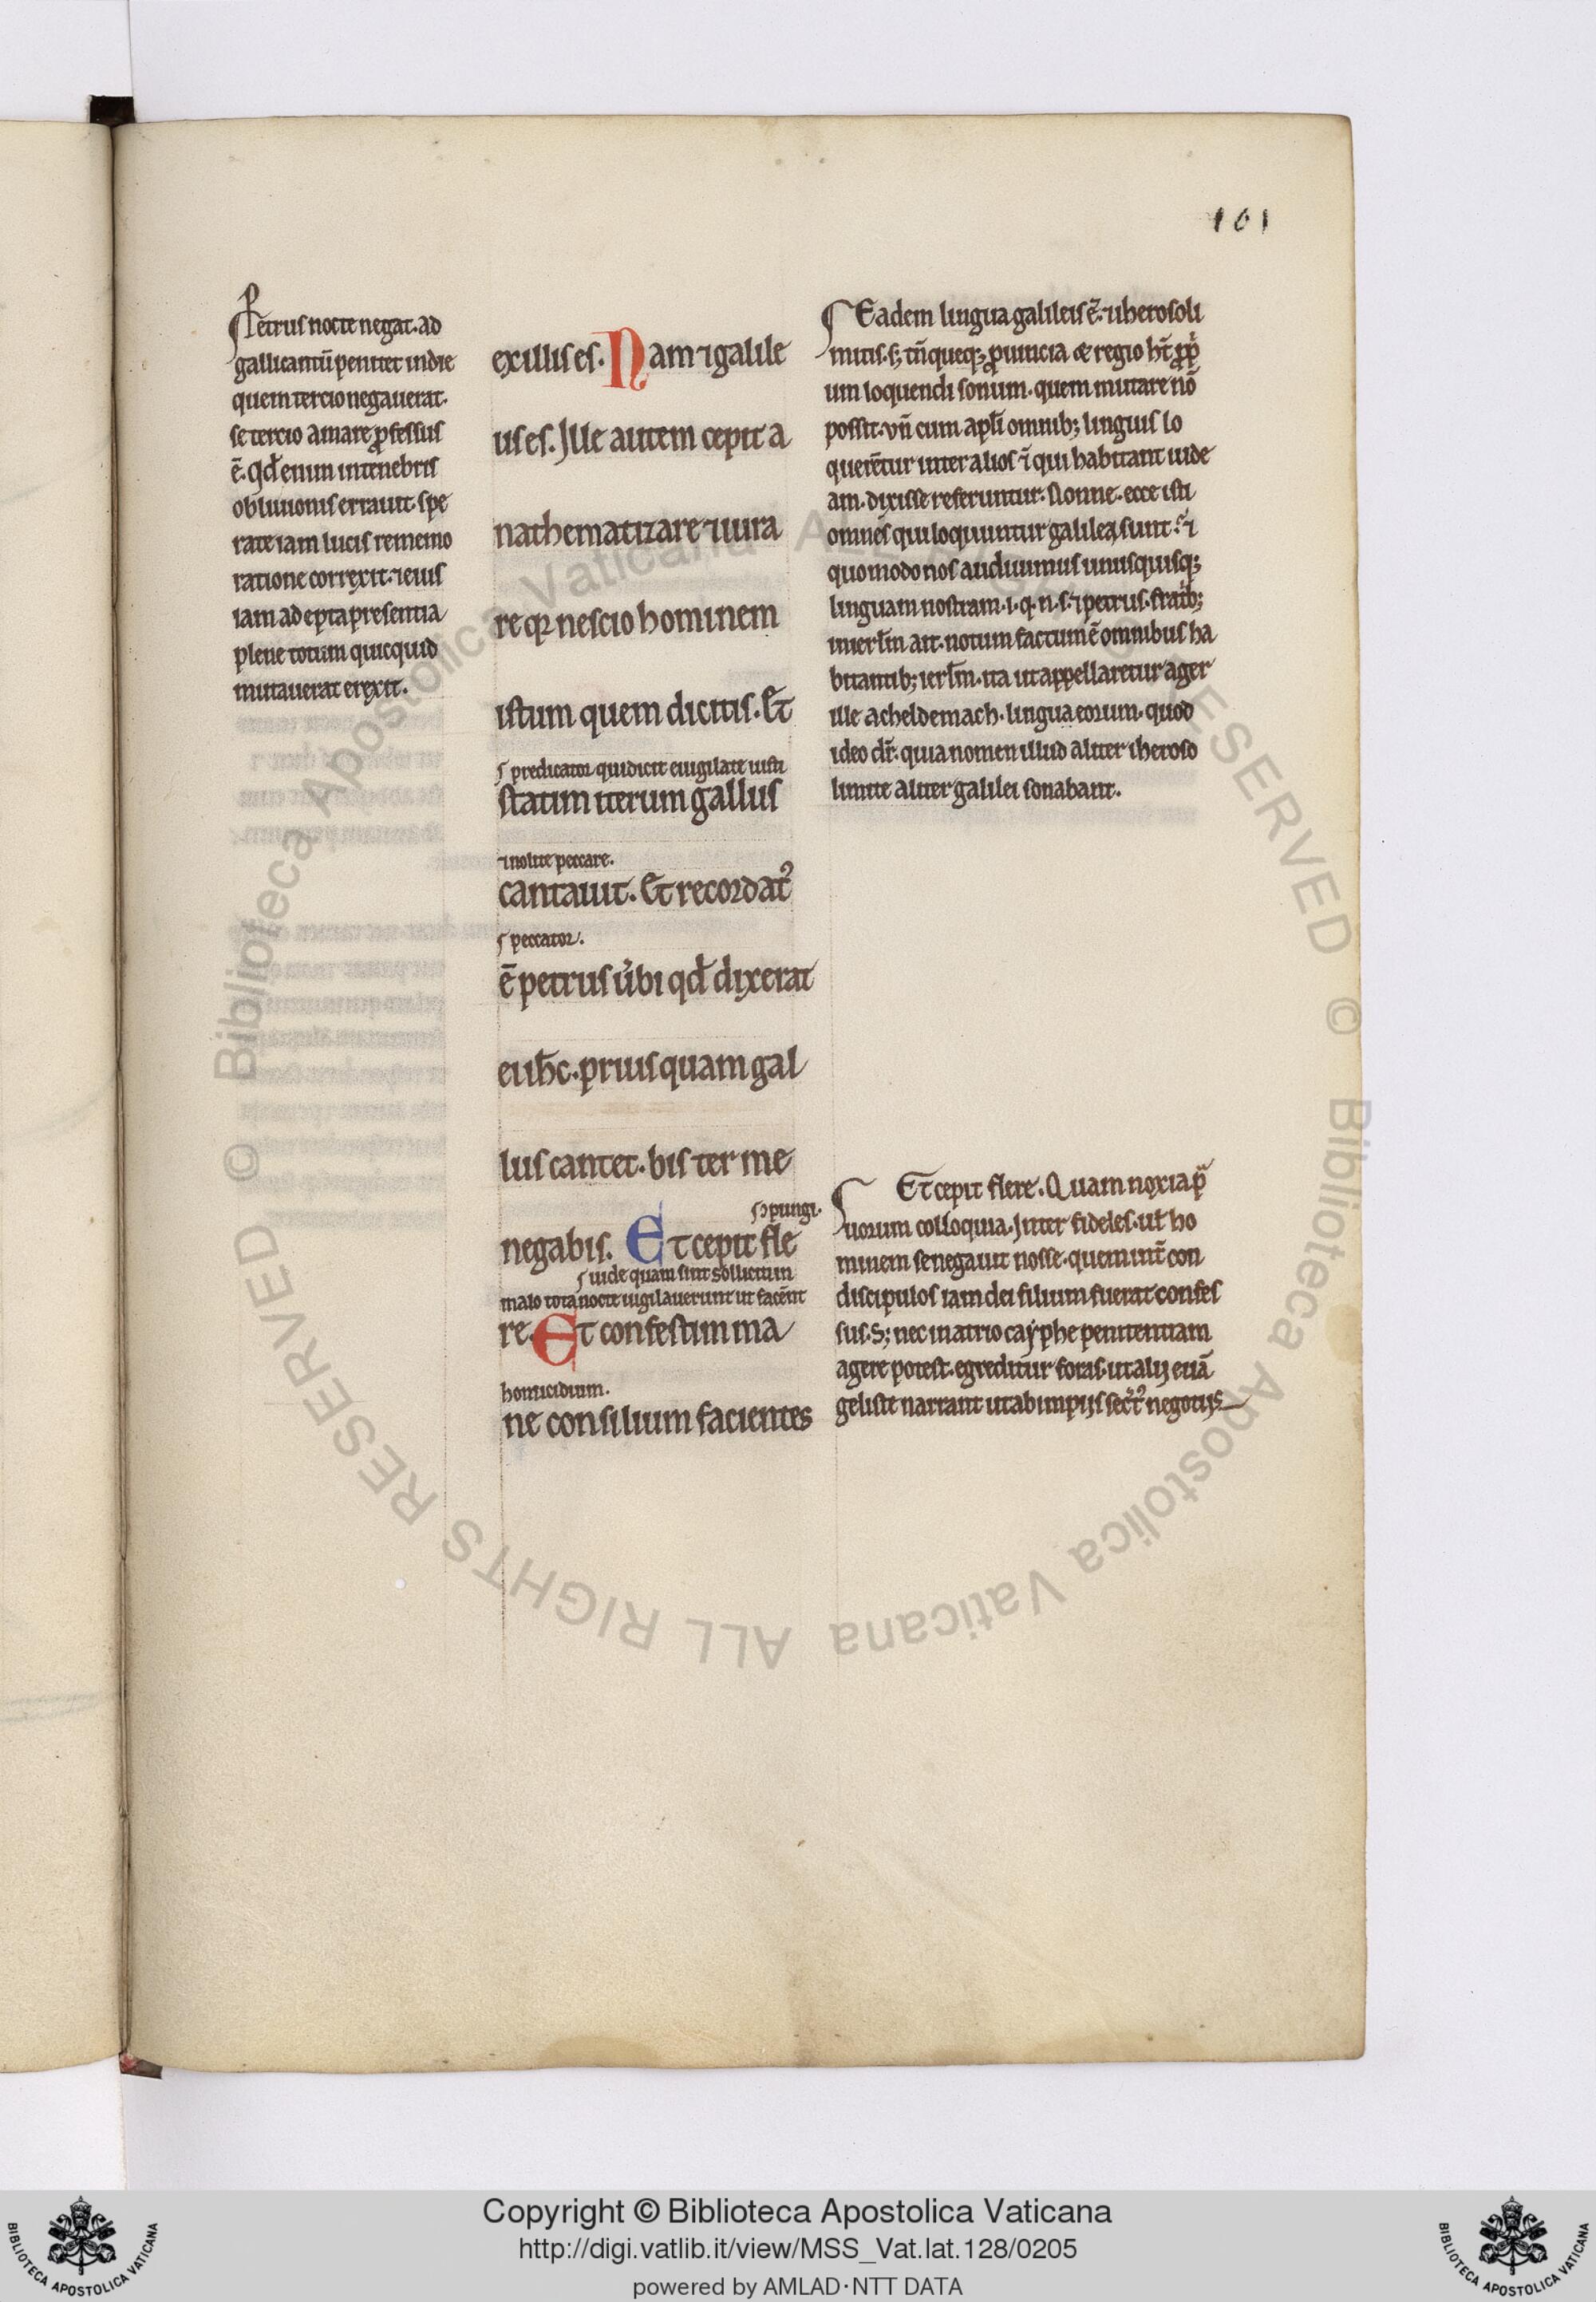 161
Petrus nocte negat. ad
gallicantū penitet in die
quem tercio negauerat.
se tercio amare ꝓfessus
ē. Qd̄ enim in tenebris
obliuionis errauit. spe
rate iam lucis rememo
ratione correxit. ⁊ eius
iam adepta presentia
plene totum quicquid
mutauerat erexit.
ex illis es. Nam ⁊ galile
us es. Ille autem cepit a
nathematizare ⁊ iura
re qꝛ nescio hominem
istum quem dicitis. Et
predicator qui dicit euigilate iusti
statim iterum gallus
⁊ nolite peccare.
cantauit. Et recordatꝰ
peccator.
ē petrus ūbi qd̄ dixerat
ei ih̄c. prius quam gal
lus cantet. bis ter me
ꝯpungi.
negabis. Et cepit fle
uide quam sint solliciti in
malo tota nocte uigilauerunt ut facēnt
re. Et confestim ma
homicidium.
ne consilium facientes
Eadem lingua galileis ē. ⁊ iherosoli
mitis. sꝫ tn̄ queqꝫ ꝓuincia & regio hn̄t ꝓp̄
um loquendi sonum. quem mutare nō
possit. vn̄ cum apl̄i omnibꝫ linguis lo
querētur inter alios ⁊ qui habitant iude
am. dixisse referuntur. Nonne. ecce isti
omnes qui loquuntur galilei sunt. ⁊
quomodo nos audiuimus unusquisqꝫ
linguam nostram. i. q. n. s. ⁊ petrus. fratribꝫ
in ierl̄m ait. notum factum ē omnibus ha
bitantibꝫ ierl̄m. ita ut appellaretur ager
ille acheldemach. lingua eorum. quod
ideo dr̄. quia nomen illud aliter iheroso
limite aliter galilei sonabant.
Et cepit flere. Quam noxia p̄
uorum colloquia. Inter fideles. ul̄ ho
minem se negauit nosse. quem int̄ con
discipulos iam dei filium fuerat confes
sus. Sꝫ nec in atrio cayphe penitentiam
agere potest. egreditur foras. ut alij euā
geliste narrant ut ab impijs sec̄tꝰ negotijs
Copyright © Biblioteca Apostolica Vaticana
http://digi.vatlib.it/view/MSS_Vat.lat.128/0205
powered by AMLAD·NTT DATA
BIBLIOTECA APOSTOLICA VATICANA
BIBLIOTECA APOSTOLICA VATICANA
© Biblioteca Apostolica Vaticana ALL RIGHTS RESERVED
© Biblioteca Apostolica Vaticana ALL RIGHTS RESERVED